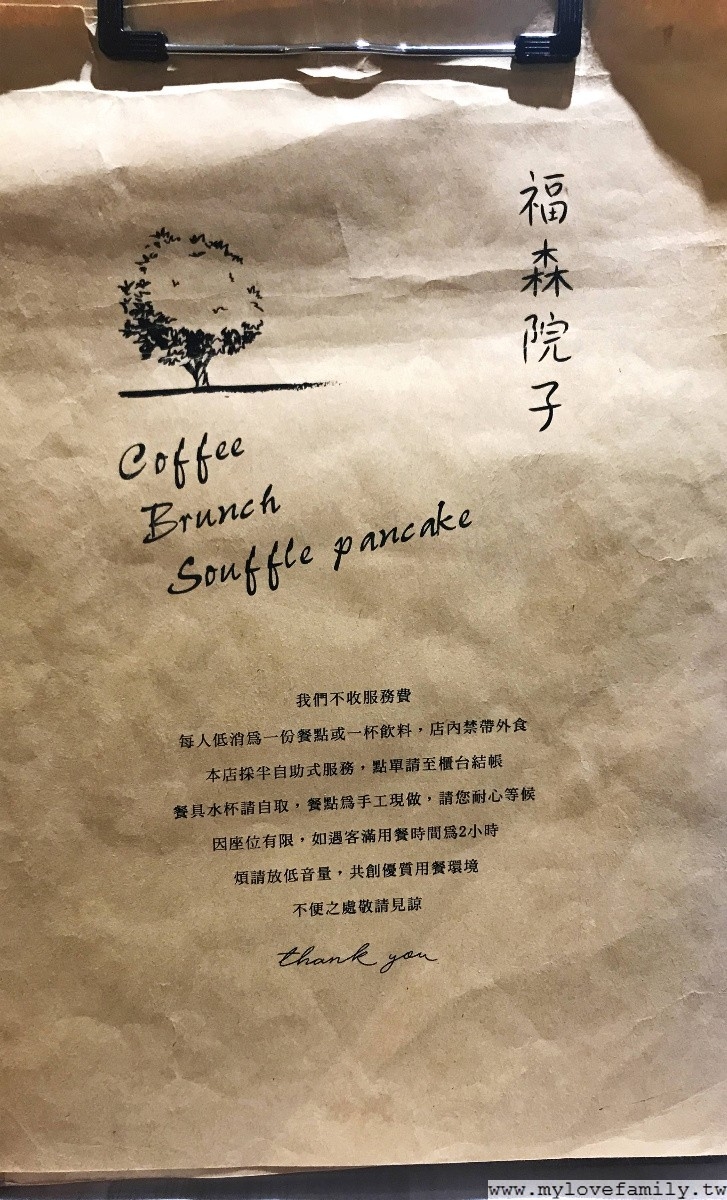 福森院子
Coffee
Brunch
Souffle pancake
我們不收服務費
每人低消為一份餐點或一杯飲料，店內禁帶外食
本店採半自助式服務，點單請至櫃台結帳
餐具水杯請自取，餐點為手工現做，請您耐心等候
因座位有限，如遇客滿用餐時間為2小時
煩請放低音量，共創優質用餐環境
不便之處敬請見諒
thank you
www.mylovefamily.tw